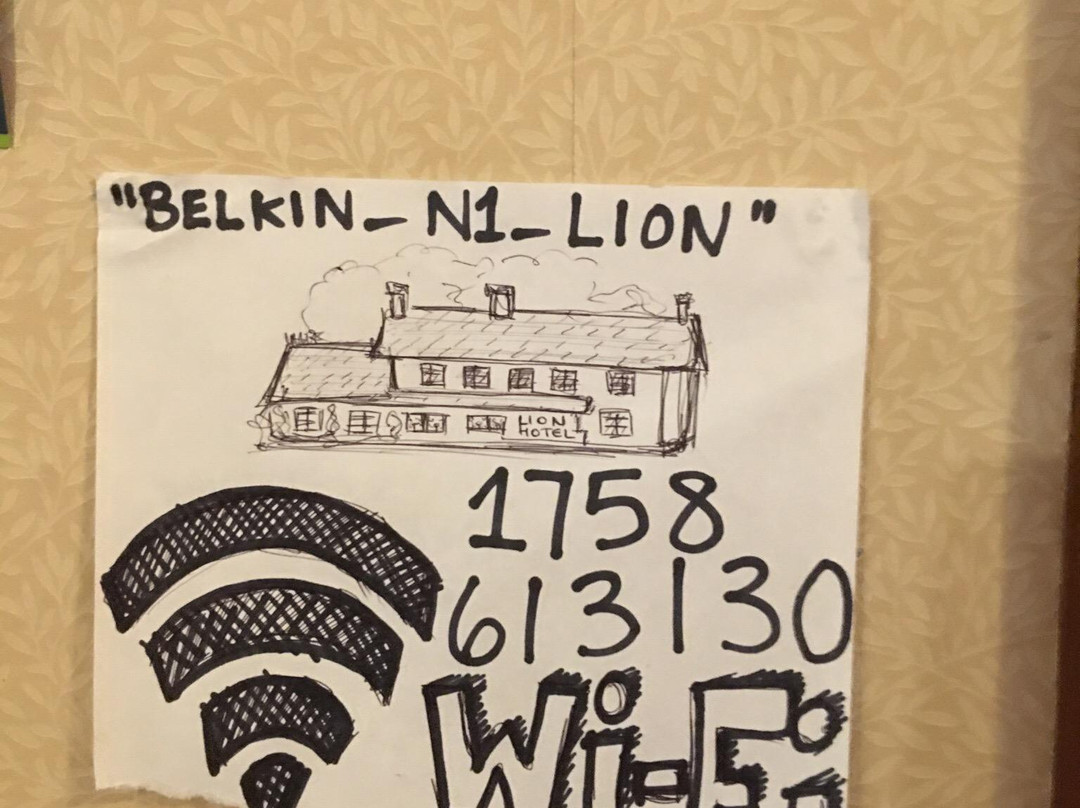 "BELKIN_N1_LION"
LION
HOTEL
1758
613130
Wi-Fi